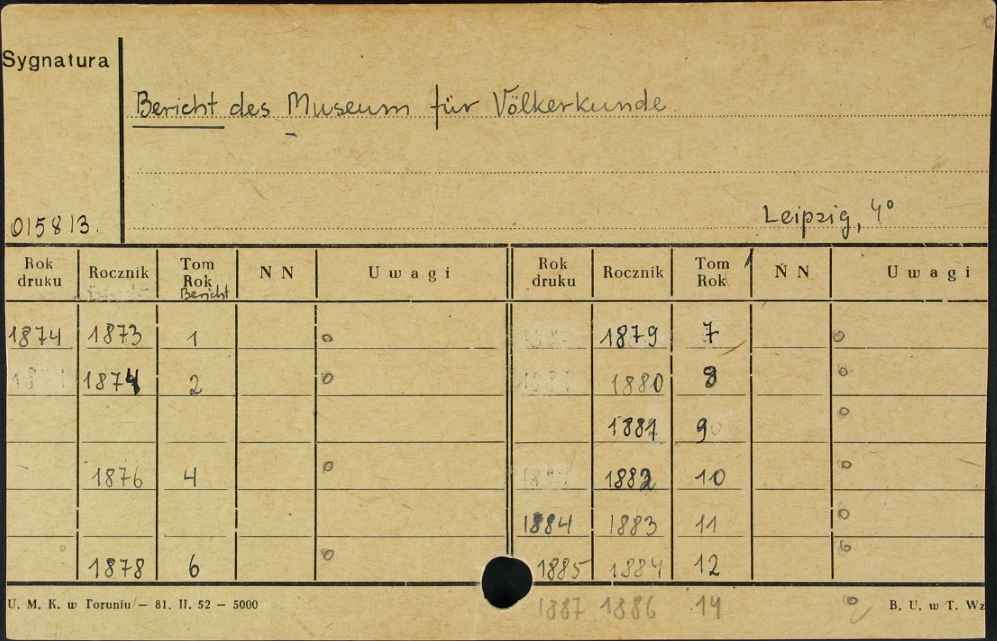 Sygnatura
Bericht des Museum für Völkerkunde
015813.
Leipzig, 4°
Rok druku Rocznik Tom Rok Bericht N N Uwagi Rok druku Rocznik Tom Rok N N Uwagi
1874 1873 1 o 1879 7 o
1874 2 o 1880 8 o
1881 9 o
1876 4 o 1882 10 o
1884 1883 11 o
1878 6 o 1885 1884 12 o
1887 1886 14 o
U. M. K. w Toruniu — 81. II. 52 — 5000 B. U. w T. Wz